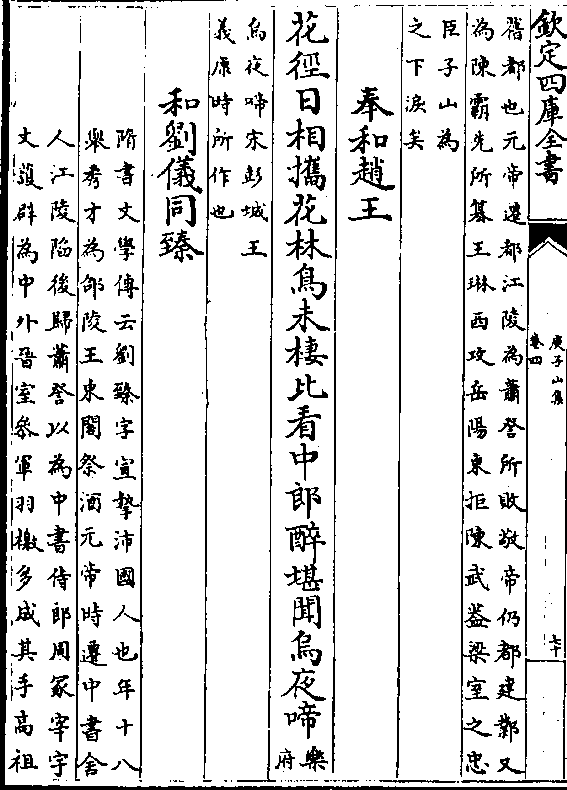 欽定四庫全書
庾子山集
卷四
七十
舊都也元帝遷都江陵為蕭詧所敗敬帝仍都建鄴又
為陳霸先所篡王琳西攻岳陽東拒陳武葢梁室之忠
臣子山為
之下淚矣
奉和趙王
花徑日相攜花林鳥未棲比看中郎醉堪聞烏夜啼樂府
烏夜啼宋彭城王
義康時所作也
和劉儀同臻
隋書文學傳云劉臻字宣摯沛國人也年十八
舉秀才為邵陵王東閣祭酒元帝時遷中書舍
人江陵陷後歸蕭詧以為中書侍郎周冢宰宇
文護辟為中外晉室叅軍羽檄多成其手高祖